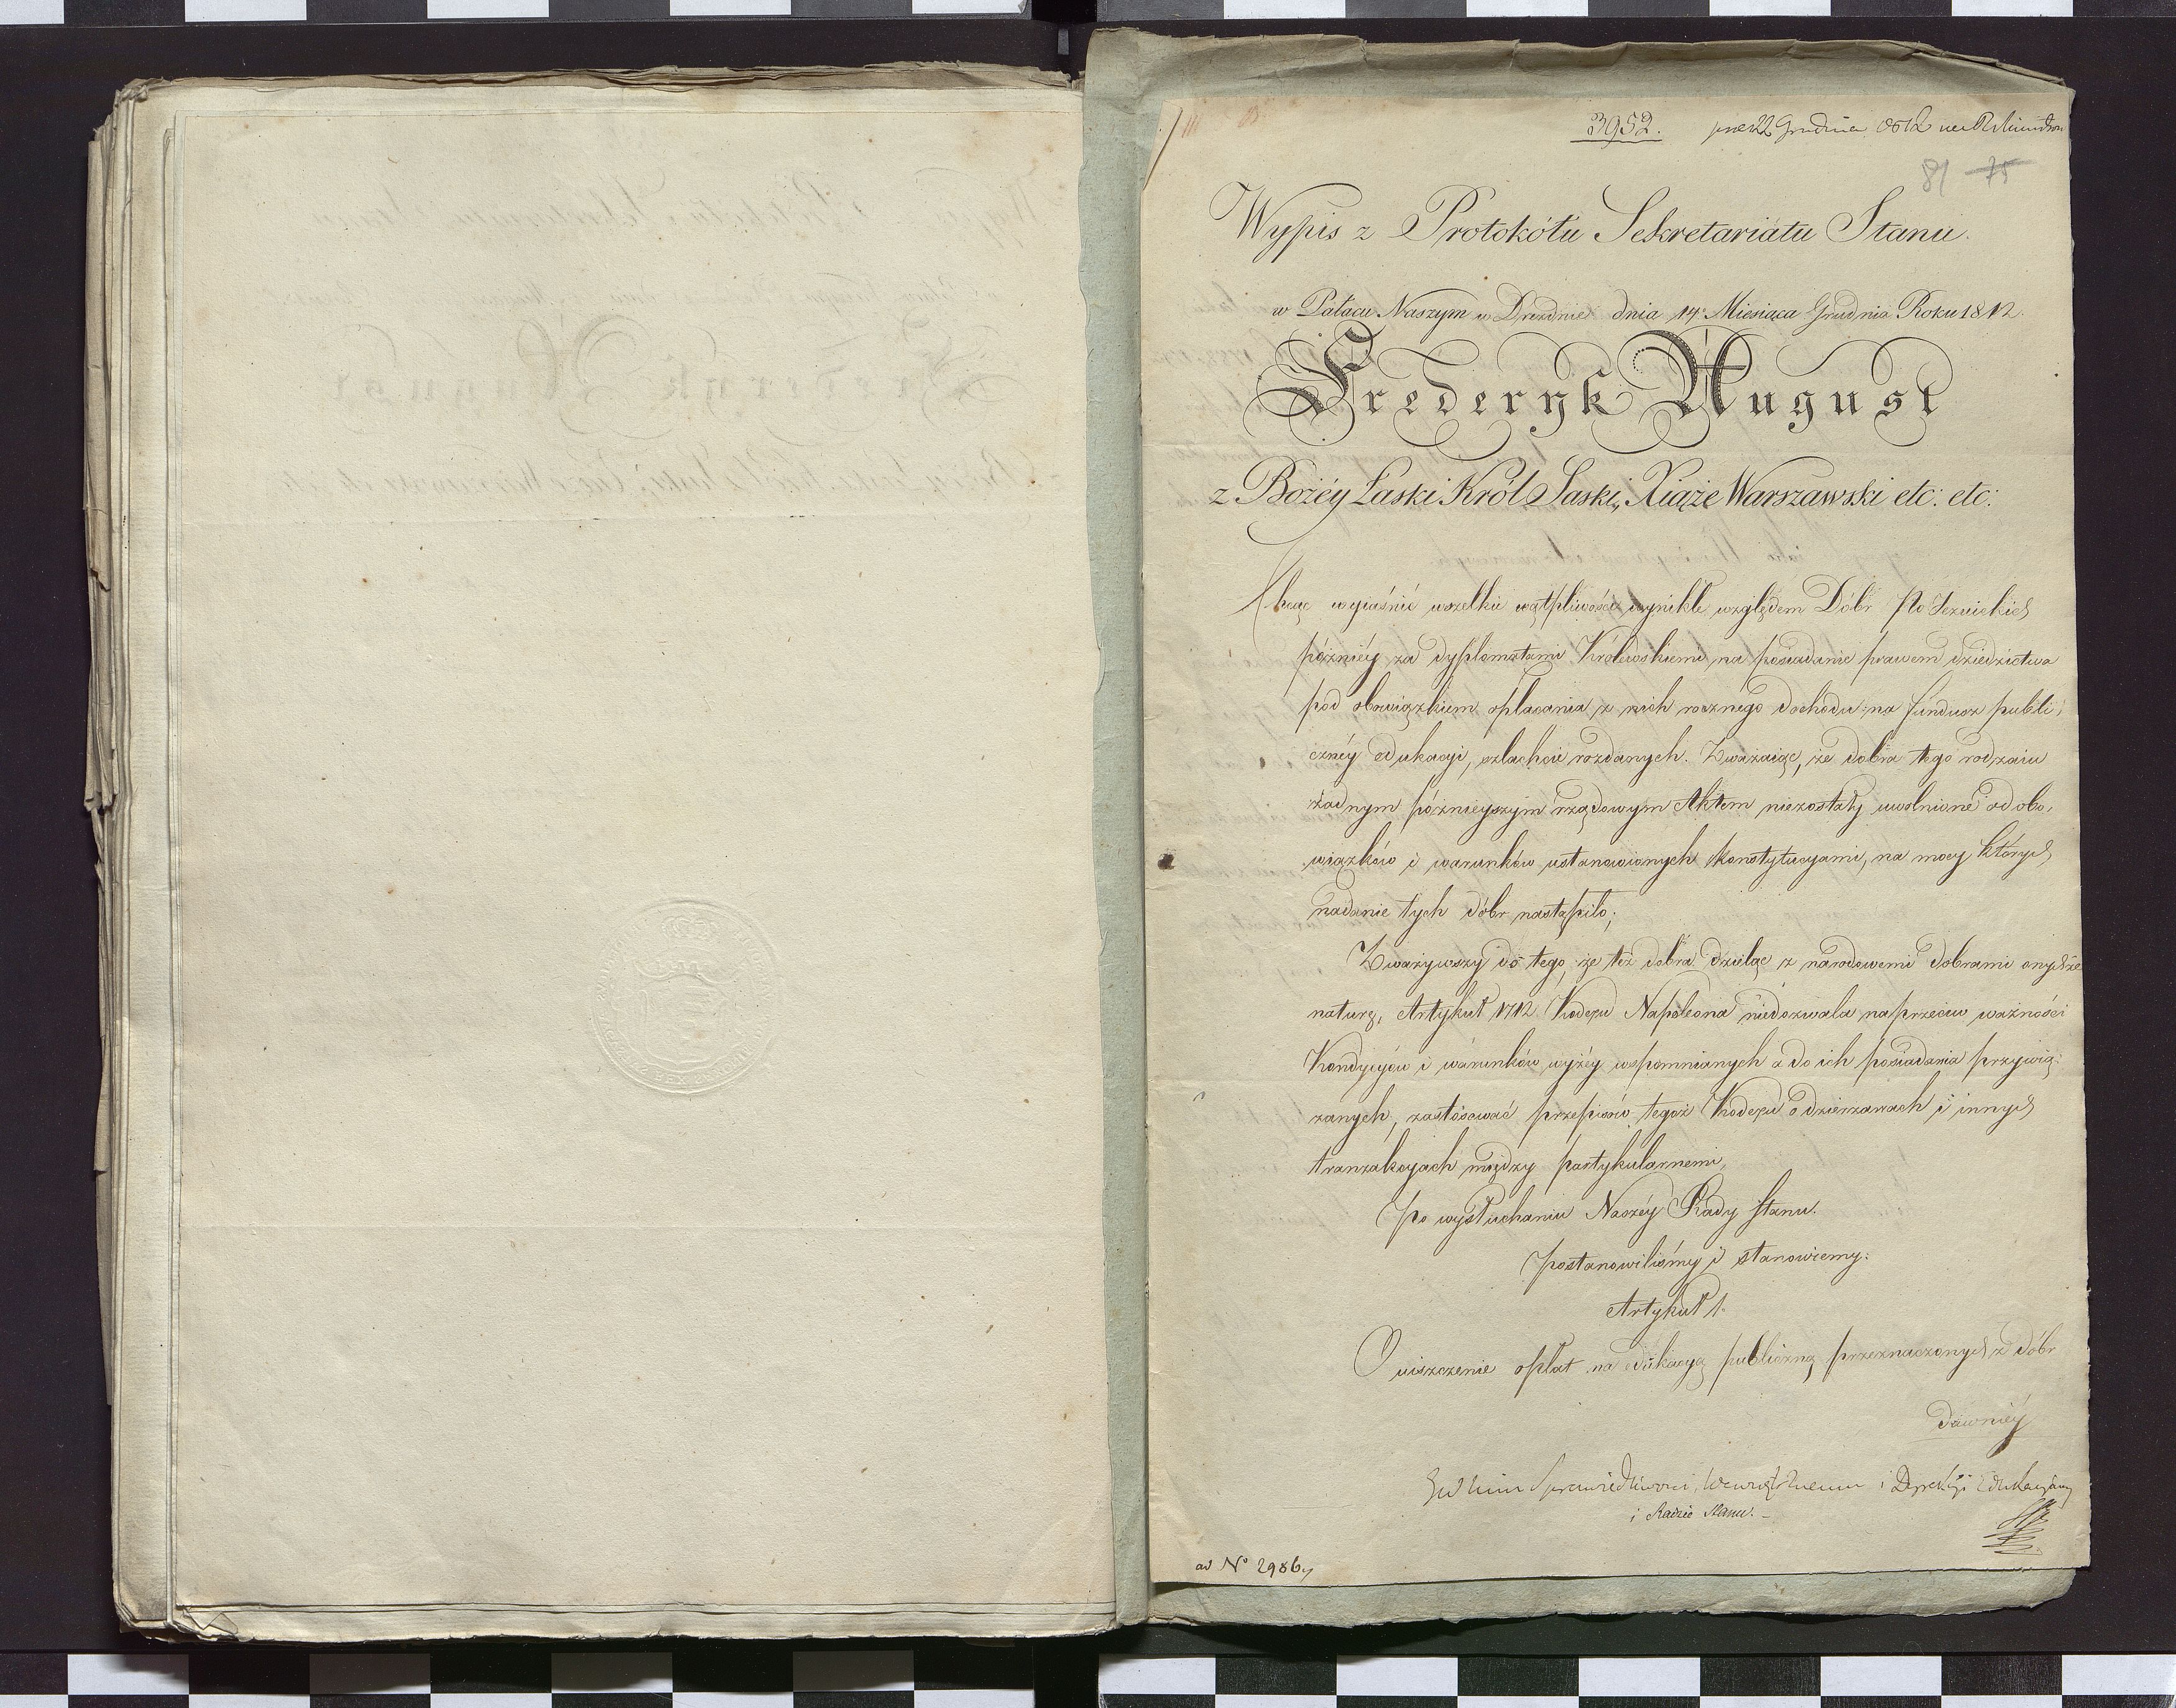 3952. prez 22 Grudnia 1812
81 75
Wypis z Protokółu Sekretariatu Stanu.
w Pałacu Naszym w Dreźnie dnia 14. Miesiąca Grudnia Roku 1812.
Frederyk August
z Bożéy Łaski Król Saski, Xiąże Warszawski etc: etc:
Chcąc wyiaśnić wszelkie wątpliwości wynikłe względem Dóbr Po Jezuickich
późniéy za dyplomatami Królewskiemi na posiadanie prawem dziedzictwa
pod obowiązkiem opłacania z nich rocznégo dochodu na fundusz publi-
cznéy edukacyi, szlachcie rozdanych. Zważaiąc, że dobra tego rodzaiu
żadnym późnieyszym rządowym Aktem niezostały uwolnione od obo-
wiązków i warunków ustanowionych Konstytucyami, na mocy których
nadanie tych dóbr nastąpiło;
Zważywszy do tego, że też dobra dzieląc z narodowemi dobrami onychże
naturę, Artykuł 1712 Kodexu Napoleona niedozwala naprzeciw ważności
Kondycyów i warunków wyżéy wspomnianych a do ich posiadania przywią-
zanych, zastósować przepisów tegoż Kodexu o dzierżawach i innych
tranzakcyach między partykularnemi,
Po wysłuchaniu Naszéy Rady Stanu.
Postanowiliśmy i stanowiemy:
Artykuł 1.
O uiszczenie opłat na edukacyą publiczną przeznaczonych z dóbr
dawniéy
Sprawiedliwości, Wewnętrznemu i Dyrekcyi Edukacyiney
i Radzie Stanu.
ad No 2986